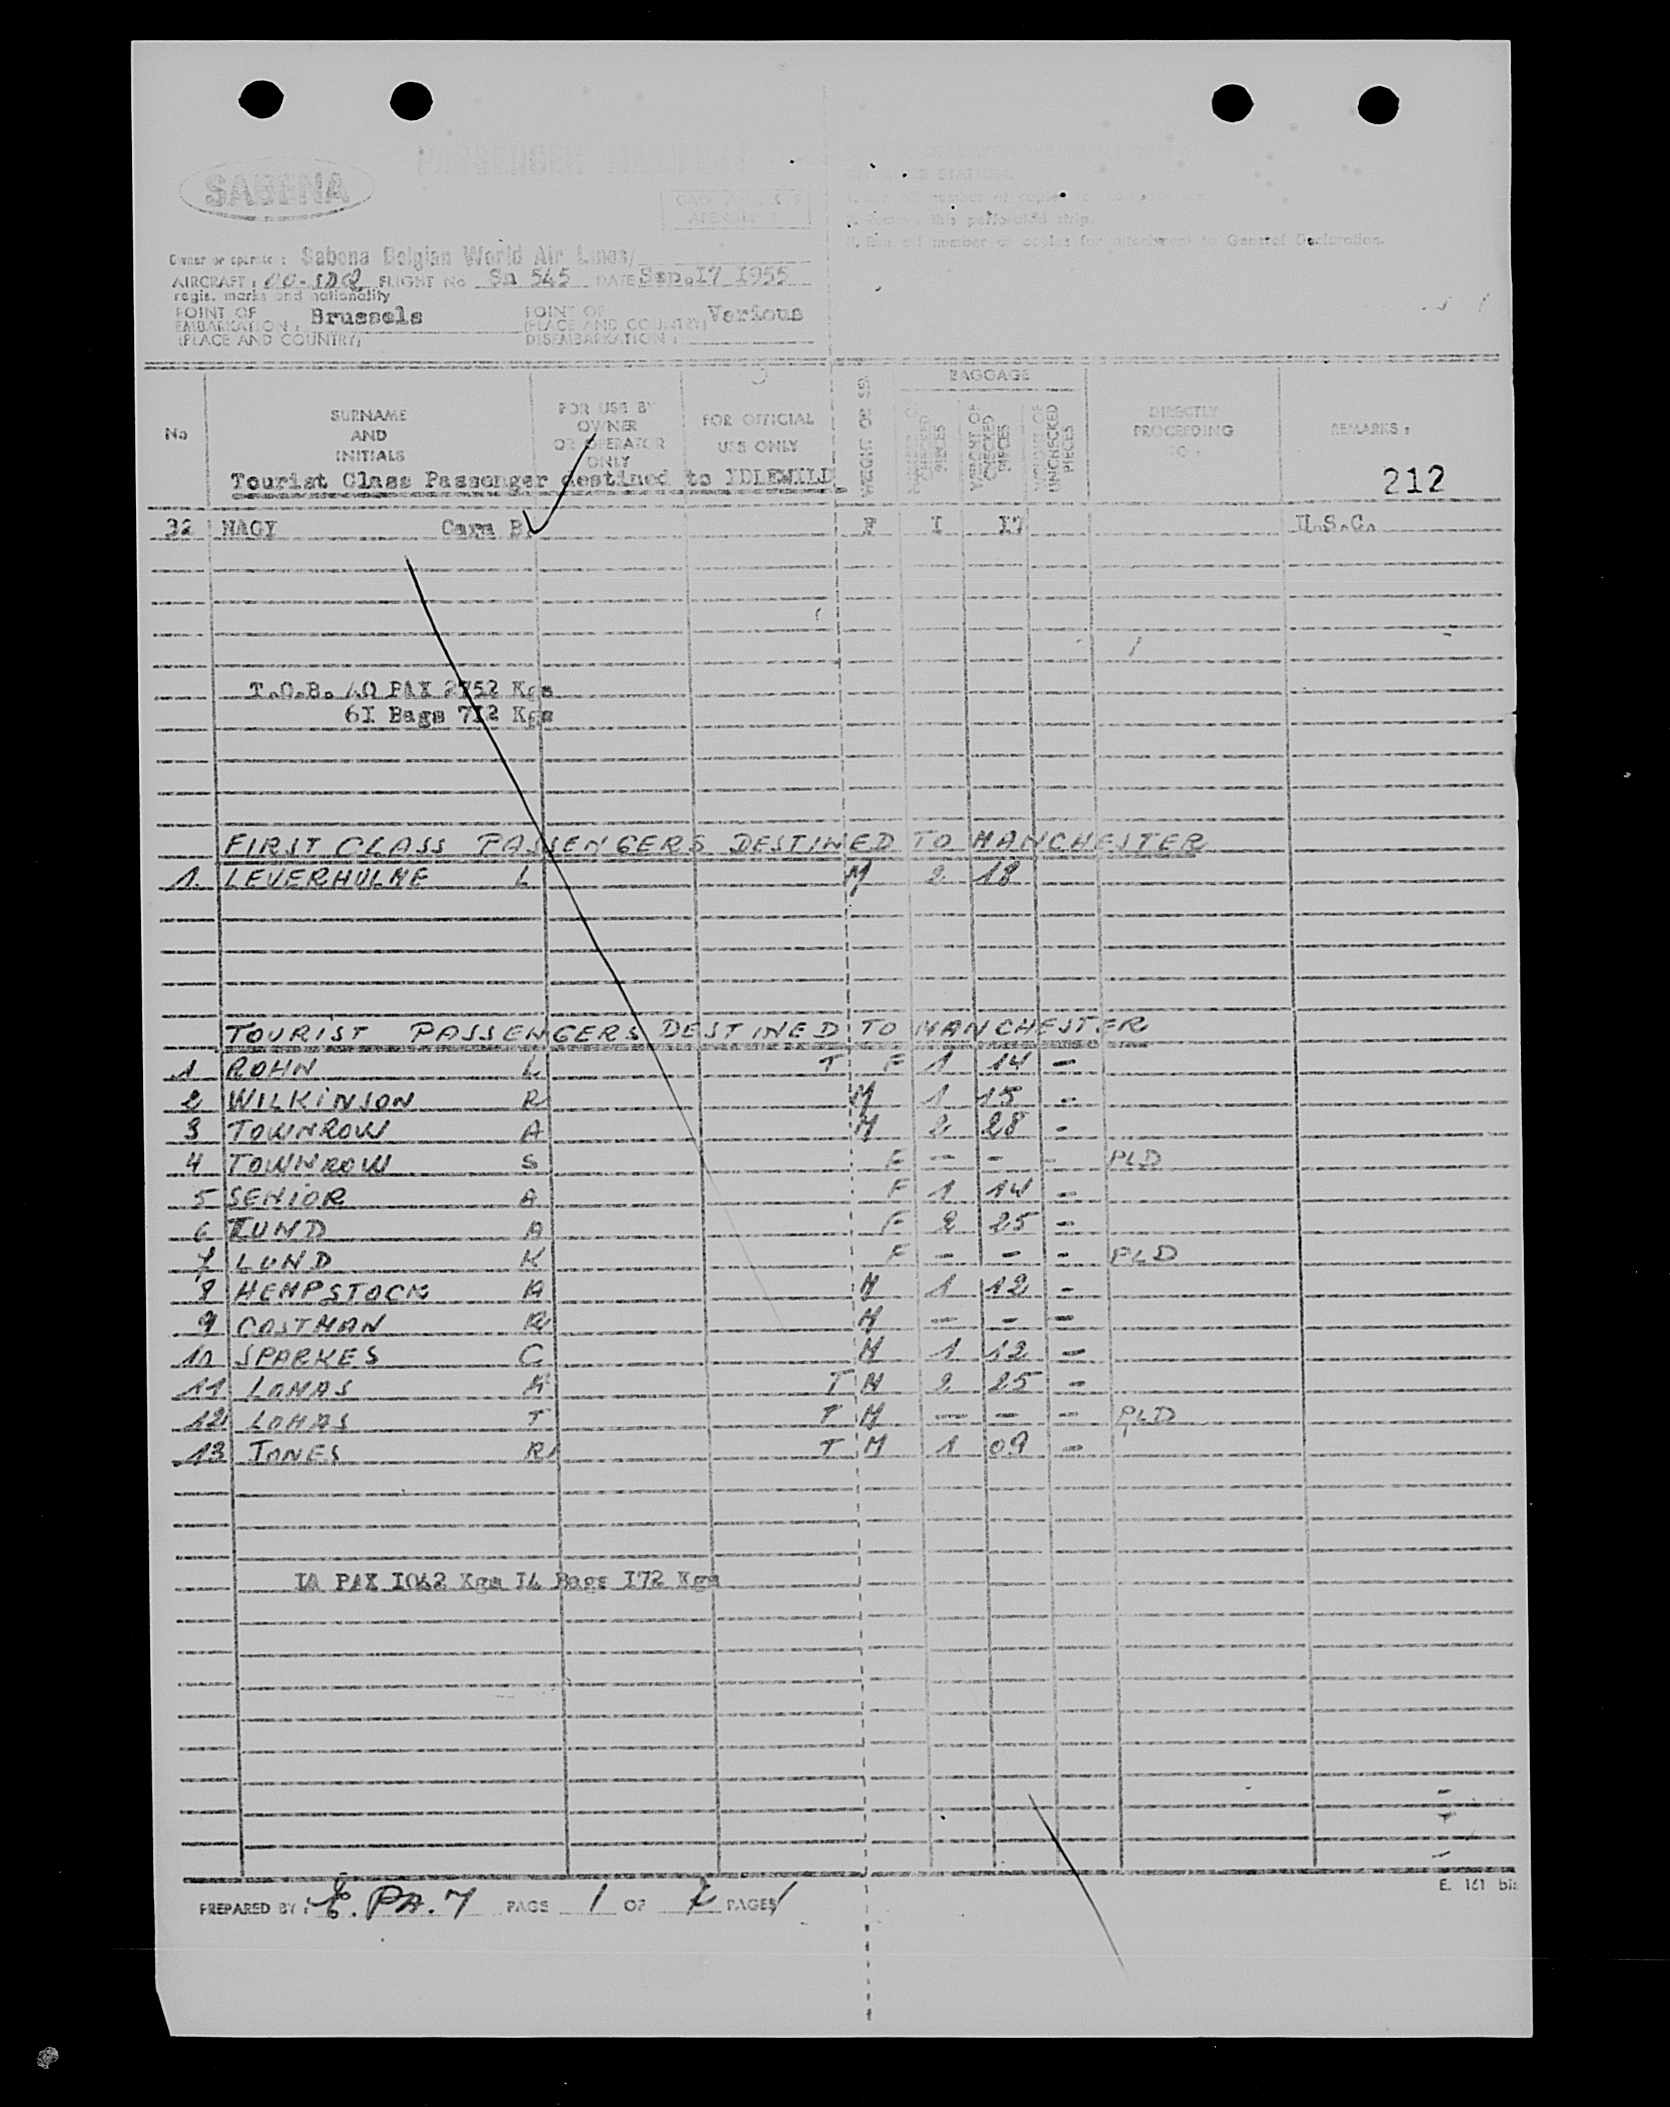 SABENA
Owner or operator : Sabena Belgian World Air Lines/
AIRCRAFT : OO-SDQ FLIGHT No Sn 545 DATE Sep.I7 I955
regis. marks and nationality
POINT OF EMBARKATION : Brussels POINT OF DISEMBARKATION : Various
(PLACE AND COUNTRY) (PLACE AND COUNTRY)
number of copies for attachment to General Declaration.
No SURNAME AND INITIALS FOR USE BY OWNER OR OPERATOR ONLY FOR OFFICIAL USE ONLY BAGGAGE CHECKED PIECES WEIGHT OF CHECKED PIECES UNCHECKED PIECES DIRECTLY PROCEEDING TO : REMARKS :
Tourist Class Passenger destined to IDLEWILD
212
32 NAGY Cara B. F I I7 U.S.C.
T.O.B. 40 PAX 2752 Kgs
6I Bags 7I2 Kgs
FIRST CLASS PASSENGERS DESTINED TO MANCHESTER
1 LEVERHULME L M 2 18
TOURIST PASSENGERS DESTINED TO MANCHESTER
1 ROHN L T F 1 14 -
2 WILKINSON R M 1 15 -
3 TOWNROW A M 2 28 -
4 TOWNROW S F - - - PLD
5 SENIOR A F 1 14 -
6 LUND A F 2 25 -
7 LUND K F - - - PLD
8 HEMPSTOCK M 1 12 -
9 COSTMAN R M - - -
10 SPARKES C M 1 12 -
11 LOMAS K T M 2 25 -
12 LOMAS T T M - - - PLD
13 JONES R T M 1 09 -
I4 PAX I042 Kgs I4 Bags I72 Kgs
E. 161 bis
PREPARED BY : PAGE 1 OF 2 PAGES